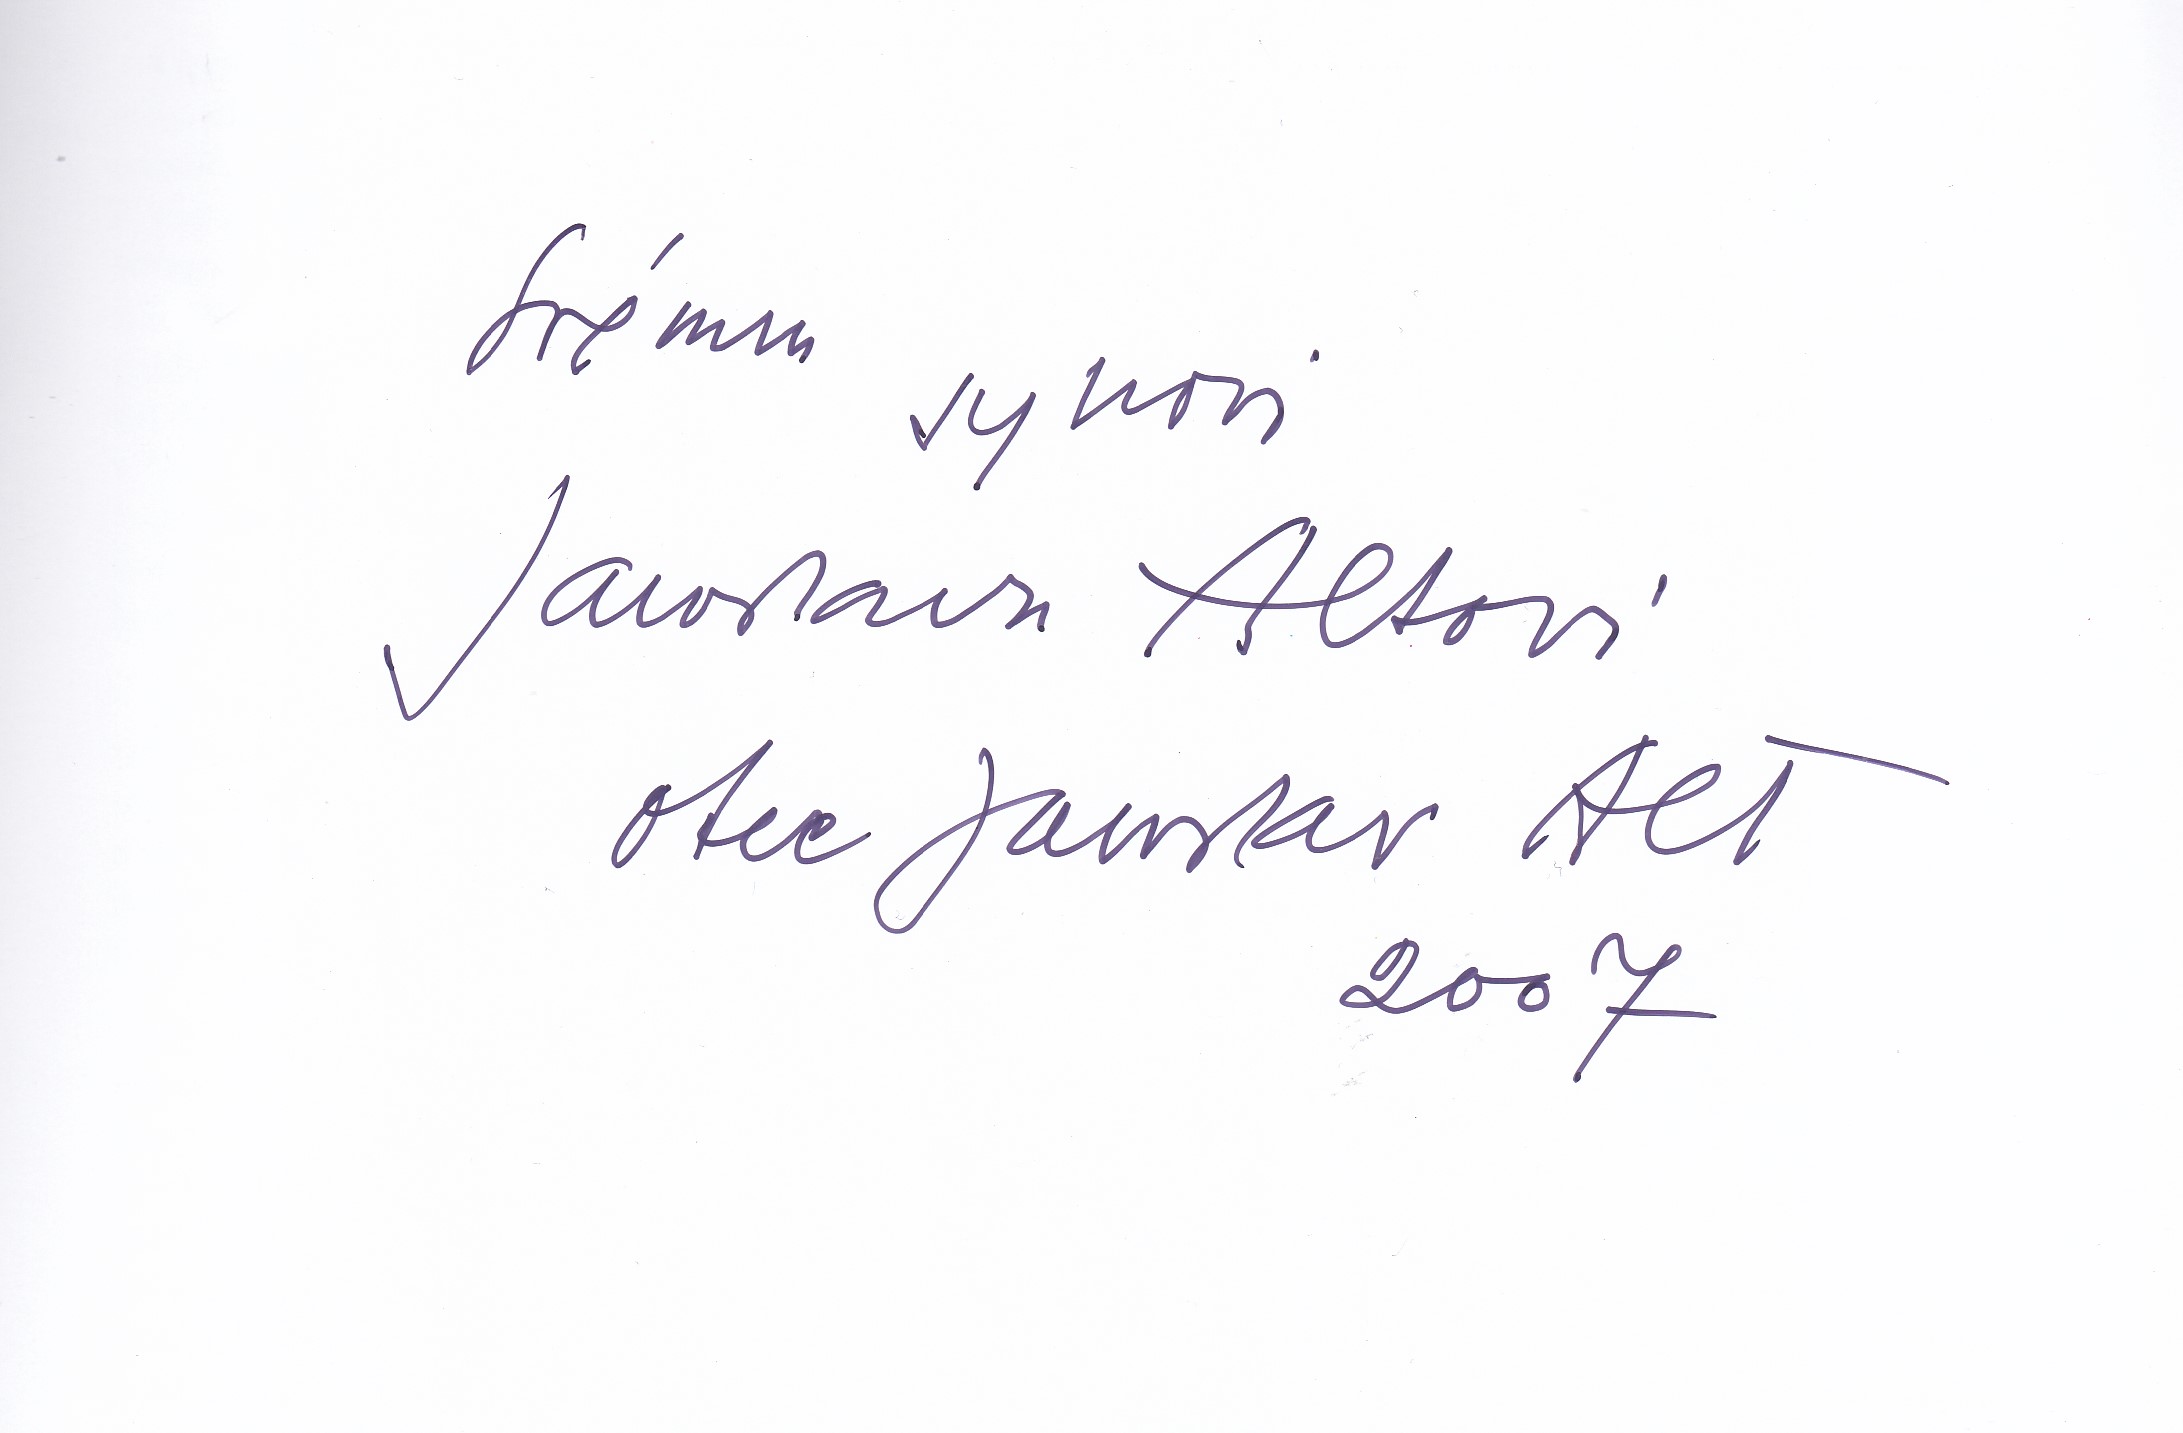 Svému synovi
Jaroslavu Altovi
otec Jaroslav Alt
2007